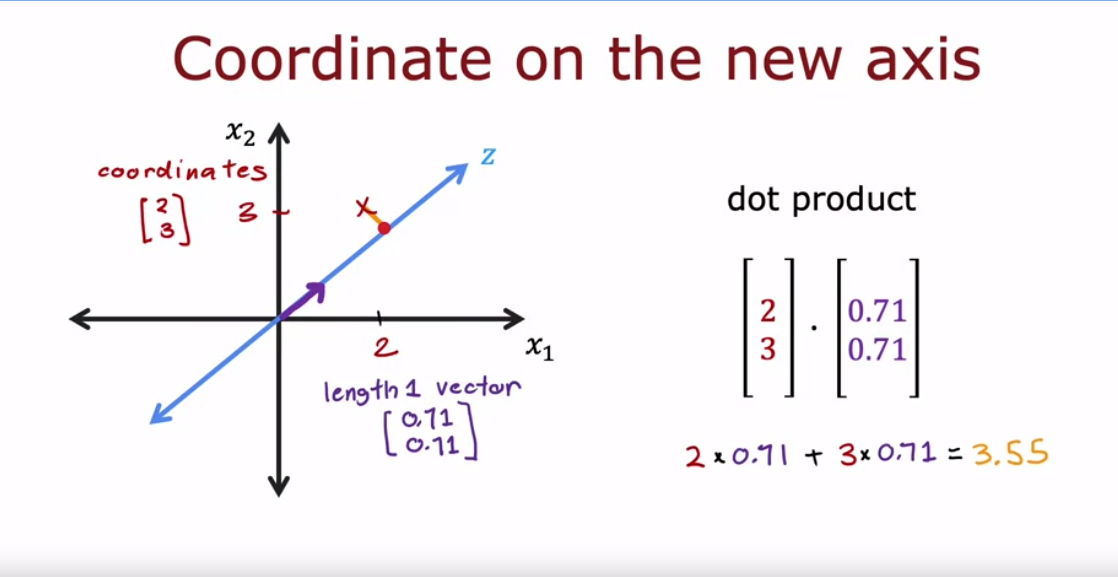 Coordinate on the new axis
x₂
z
coordinates
[2
3]
3
x
2
x₁
length 1 vector
[0.71
0.71]
dot product
[2
3] · [0.71
0.71]
2 × 0.71 + 3 × 0.71 = 3.55